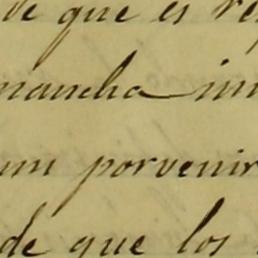 de que es
mancha
un porvenir
de que los